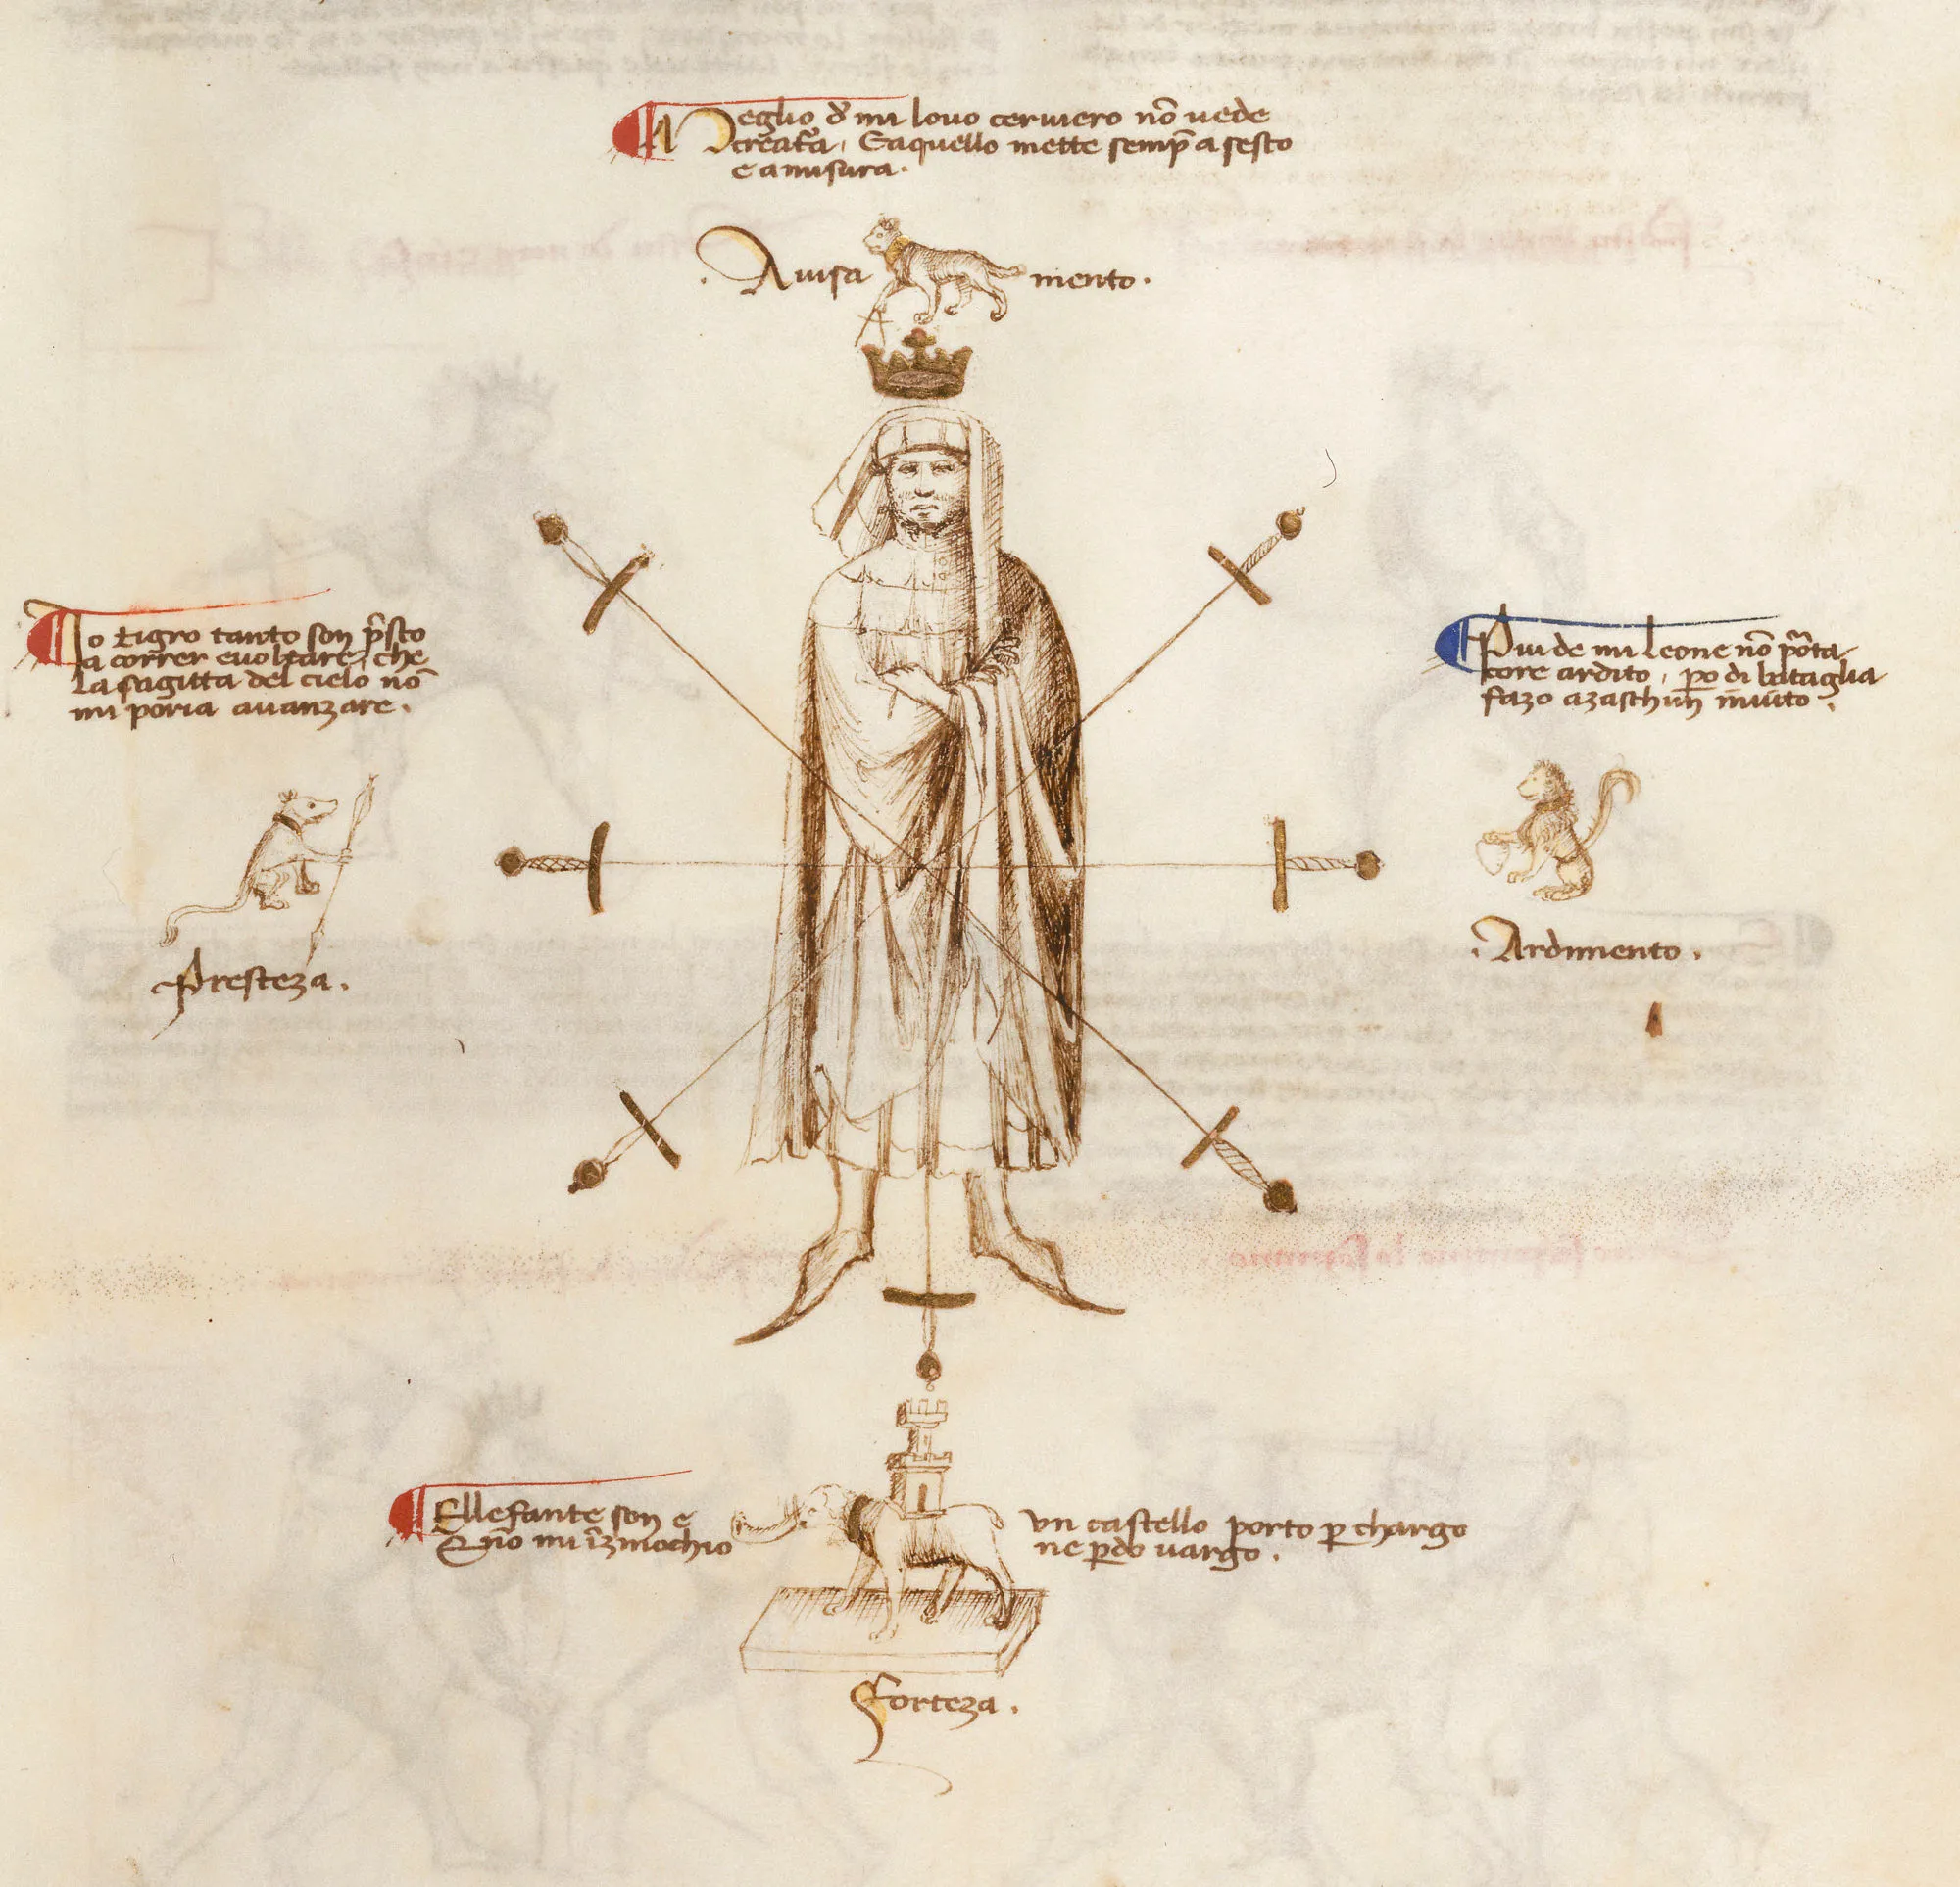 Meglio de mi louo ceruiero nō uede
creat̄a, E aquello mette semp̄ a sesto
e a misura.
Auisamento.
Io tigro tanto son p̄sto
a correr e uoltare, che
la sagitta del cielo nō
mi poria auanzare.
Presteza.
Piu de mi leone nō porta
core ardito, po di bataglia
fazo a zaschun inuito.
Ardimento.
Ellefante son e un castello porto p chargo
E nō mi īzinochio ne pdo uargo.
Forteza.